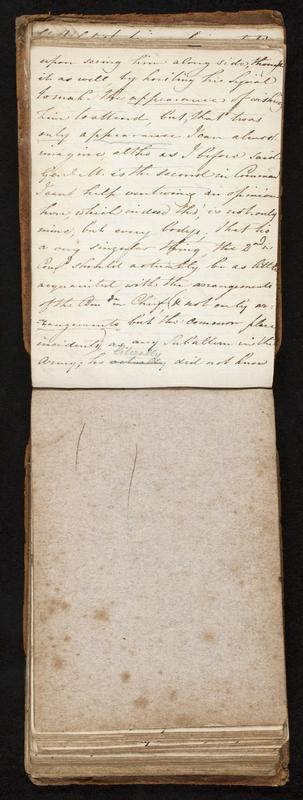 upon seeing him along side, thought
it as well by hoisting his Signal
to make the appearance of wishing
him to attend, but, that twas
only appearance I can almost
imagine, altho as I before said
Genl. M. is the second in Command
I cant help venturing an opinion
here, which indeed tho', is not only
mine, but every bodys, that tis
a very singular thing, the 2nd in
Comd. should actually be as little
acquainted with the arrangements
of the Com in Chief, & not only ar-
rangements but the common place
incidents, as any Subaltern in the
Army; he literally did not know